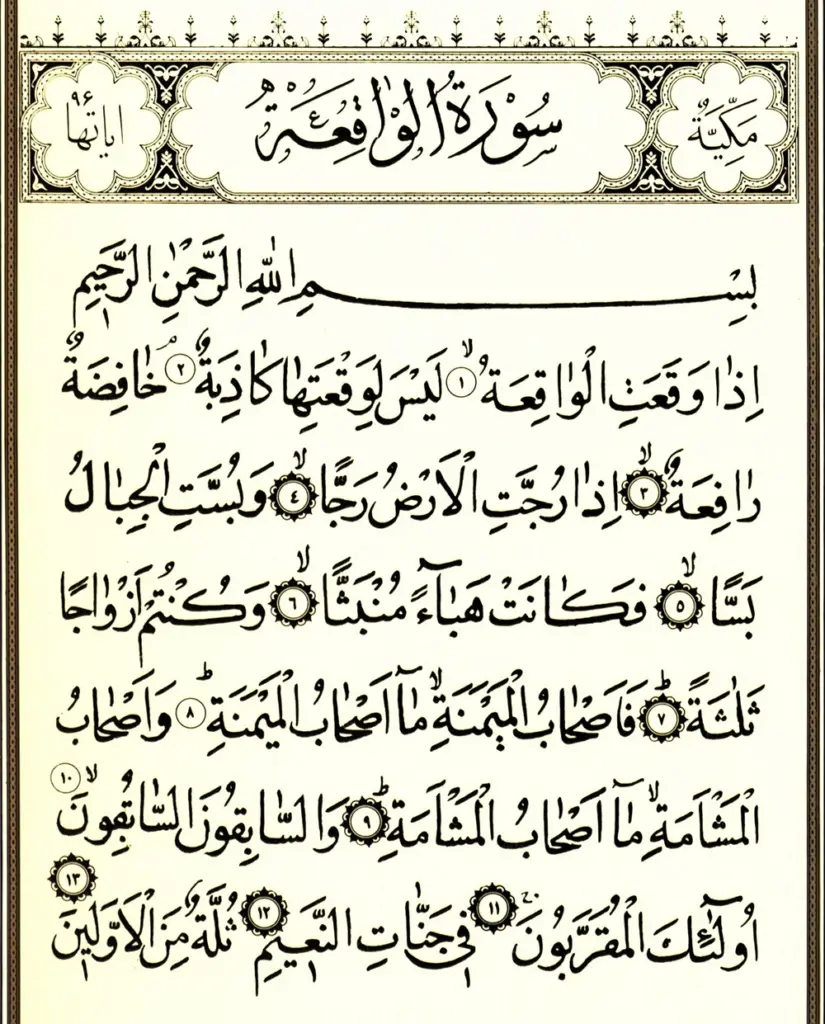 مَكِّيَّةٌ سُوْرَةُ الْوٰاقِعَةِ اياتها ٩۶
بِسْمِ اللهِ الرَّحْمٰنِ الرَّحٖيمِ
اِذٰا وَقَعَتِ الْوٰاقِعَةُ ﴿١﴾ لَيْسَ لِوَقْعَتِهٰا كٰاذِبَةٌ ﴿٢﴾ خٰافِضَةٌ
رٰافِعَةٌ ﴿٣﴾ اِذٰا رُجَّتِ الْاَرْضُ رَجًّا ﴿٤﴾ وَبُسَّتِ الْجِبٰالُ
بَسًّا ﴿٥﴾ فَكٰانَتْ هَبٰٓاءً مُنْبَثًّا ﴿٦﴾ وَكُنْتُمْ اَزْوٰاجًا
ثَلٰثَةً ﴿٧﴾ فَاَصْحٰابُ الْمَيْمَنَةِ مٰٓا اَصْحٰابُ الْمَيْمَنَةِ ﴿٨﴾ وَاَصْحٰابُ
الْمَشْاَمَةِ مٰٓا اَصْحٰابُ الْمَشْاَمَةِ ﴿٩﴾ وَالسّٰابِقُونَ السّٰابِقُونَ ﴿١٠﴾
اُولٰٓئِكَ الْمُقَرَّبُونَ ﴿١١﴾ فٖي جَنّٰاتِ النَّعٖيمِ ﴿١٢﴾ ثُلَّةٌ مِنَ الْاَوَّلٖينَ ﴿١٣﴾